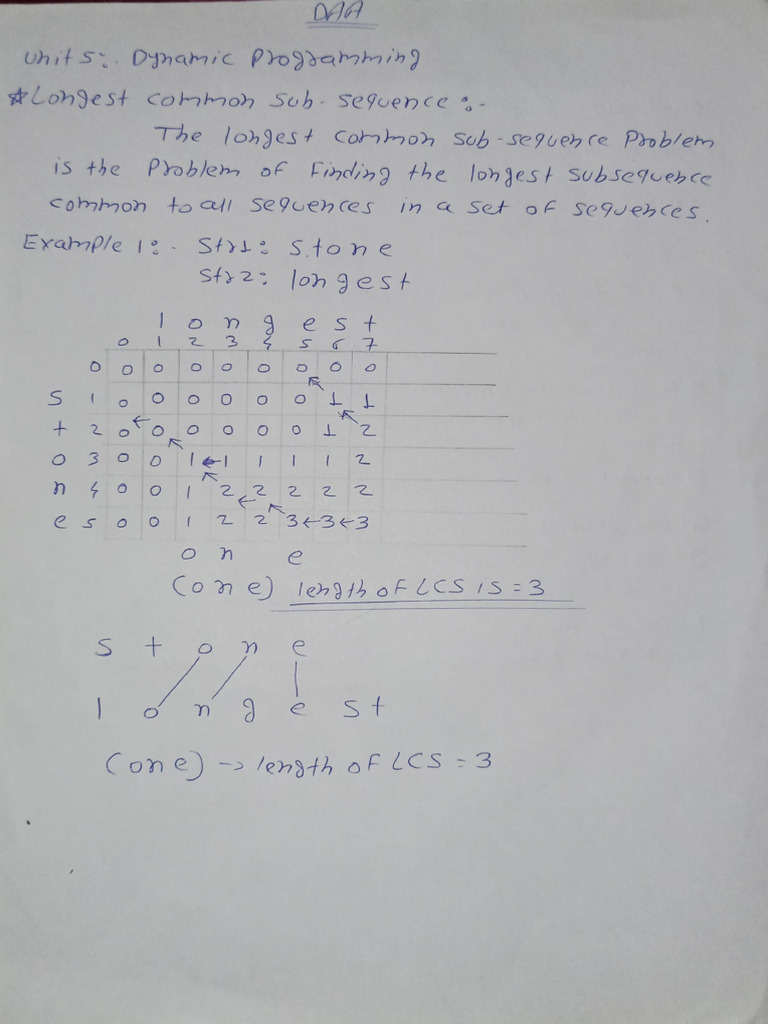 DAA
Unit 5:- Dynamic Programming
*Longest common sub-sequence:-
The longest common sub-sequence Problem
is the Problem of Finding the longest subsequence
common to all sequences in a set of sequences.
Example 1:- Str1: stone
Str2: longest
l o n g e s t
0 1 2 3 4 5 6 7
0 0 0 0 0 0 0 0 0
S 1 0 0 0 0 0 0 1 1
t 2 0 ← 0 0 0 0 0 1 2
o 3 0 0 1 ← 1 1 1 1 2
n 4 0 0 1 2 2 2 2 2
e 5 0 0 1 2 ← 2 3 ← 3 ← 3
o n e
(one) length of LCS is = 3
S t o n e
l o n g e s t
(one) → length of LCS = 3